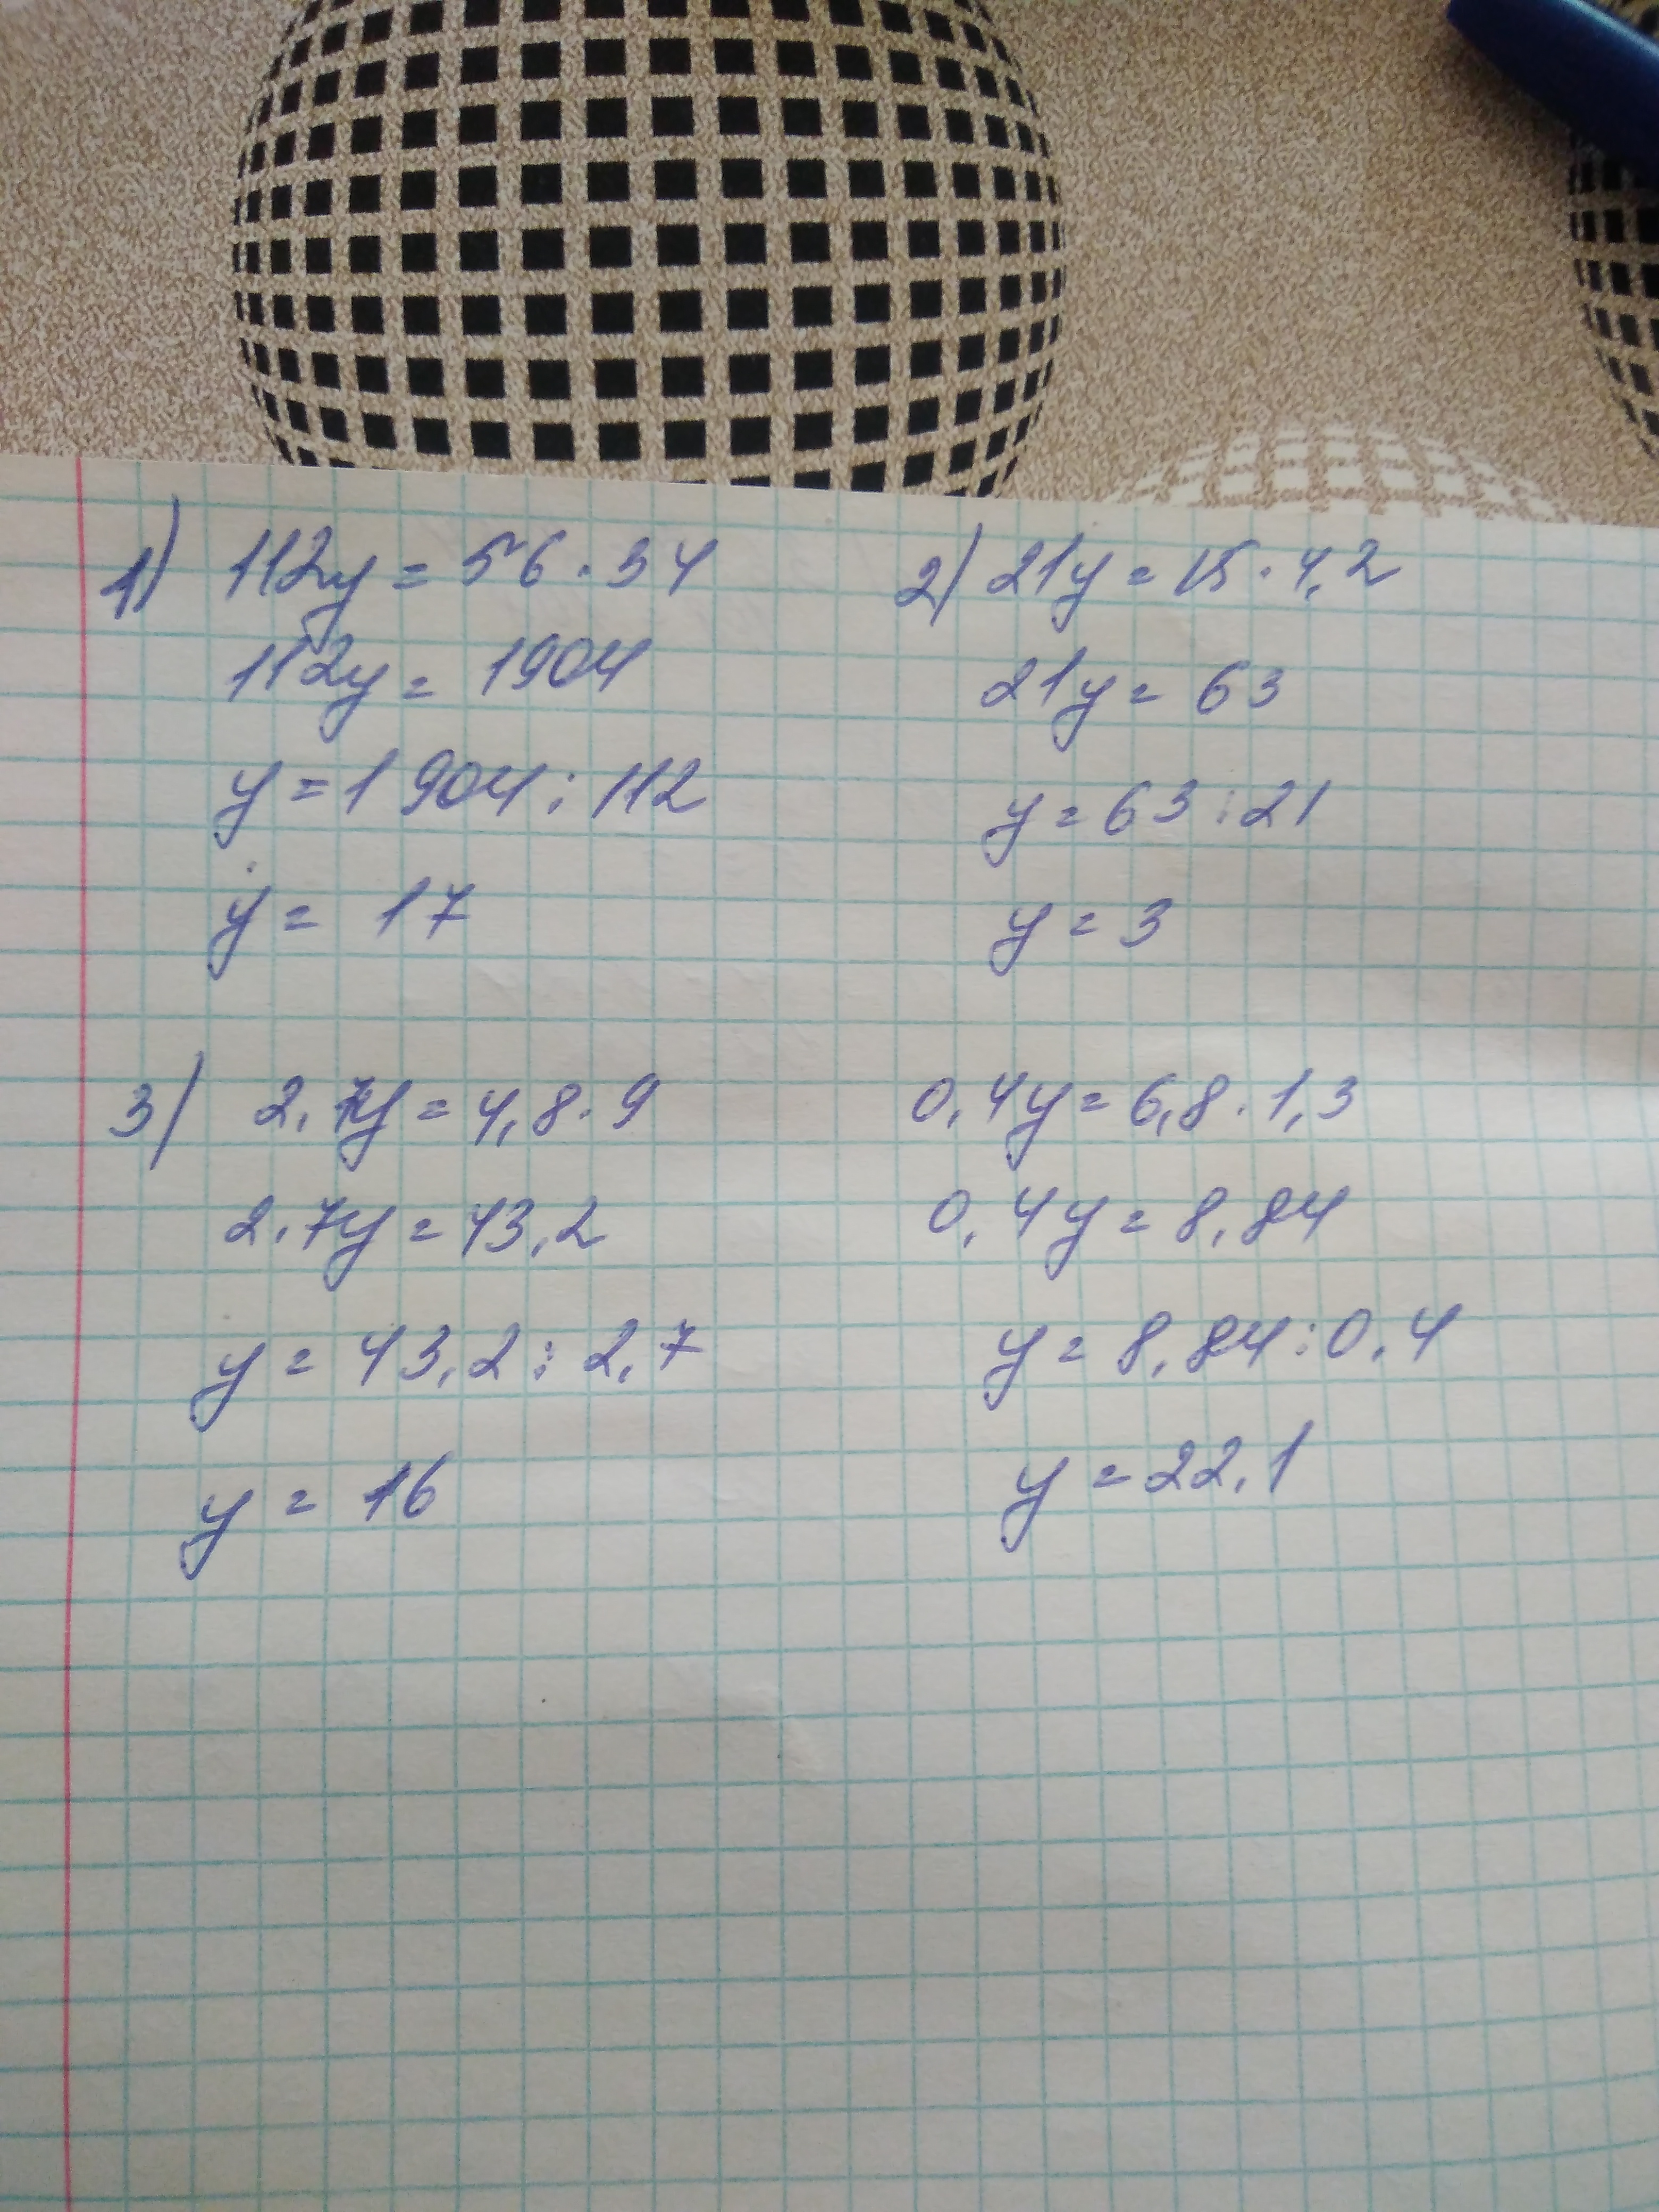 1) 112y = 56 · 34
112y = 1904
y = 1904 : 112
y = 17
2) 21y = 15 · 4,2
21y = 63
y = 63 : 21
y = 3
3) 2,7y = 4,8 · 9
2,7y = 43,2
y = 43,2 : 2,7
y = 16
0,4y = 6,8 · 1,3
0,4y = 8,84
y = 8,84 : 0,4
y = 22,1